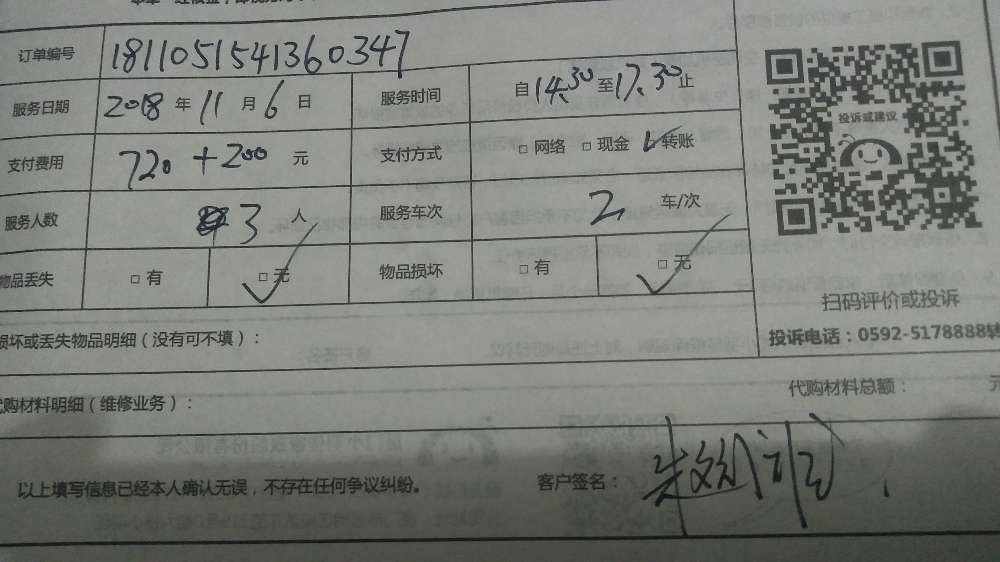 订单编号 1811051541360347
服务日期 2018 年 11 月 6 日 服务时间 自 14:30 至 17:30 止
支付费用 720 + 200 元 支付方式 □ 网络 □ 现金 ☑ 转账
投诉或建议
服务人数 3 人 服务车次 2 车/次
物品丢失 □ 有 □ 无 ✓ 物品损坏 □ 有 □ 无 ✓
扫码评价或投诉
损坏或丢失物品明细（没有可不填）：
投诉电话：0592-5178888转
代购材料明细（维修业务）： 代购材料总额： 元
以上填写信息已经本人确认无误，不存在任何争议纠纷。 客户签名：